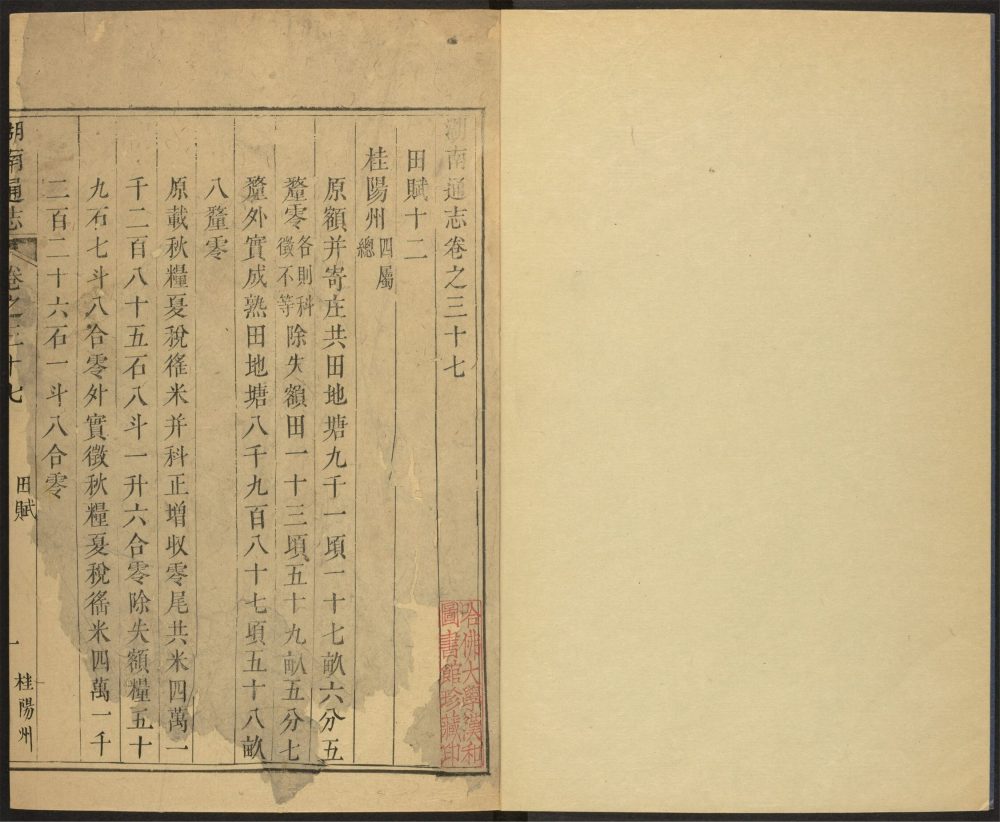 湖南通志卷之三十七
田賦十二
桂陽州四屬總
原額并寄庄共田地塘九千一頃一十七畝六分五
釐零各則科徵不等除失額田一十三頃五十九畝五分七
釐外實成熟田地塘八千九百八十七頃五十八畝
八釐零
原載秋糧夏稅徭米并科正增收零尾共米四萬一
千二百八十五石八斗一升六合零除失額糧五十
九石七斗八合零外實徵秋糧夏稅徭米四萬一千
二百二十六石一斗八合零
湖南通志 卷之三十七 田賦 一 桂陽州
哈佛大學漢和
圖書館珍藏印